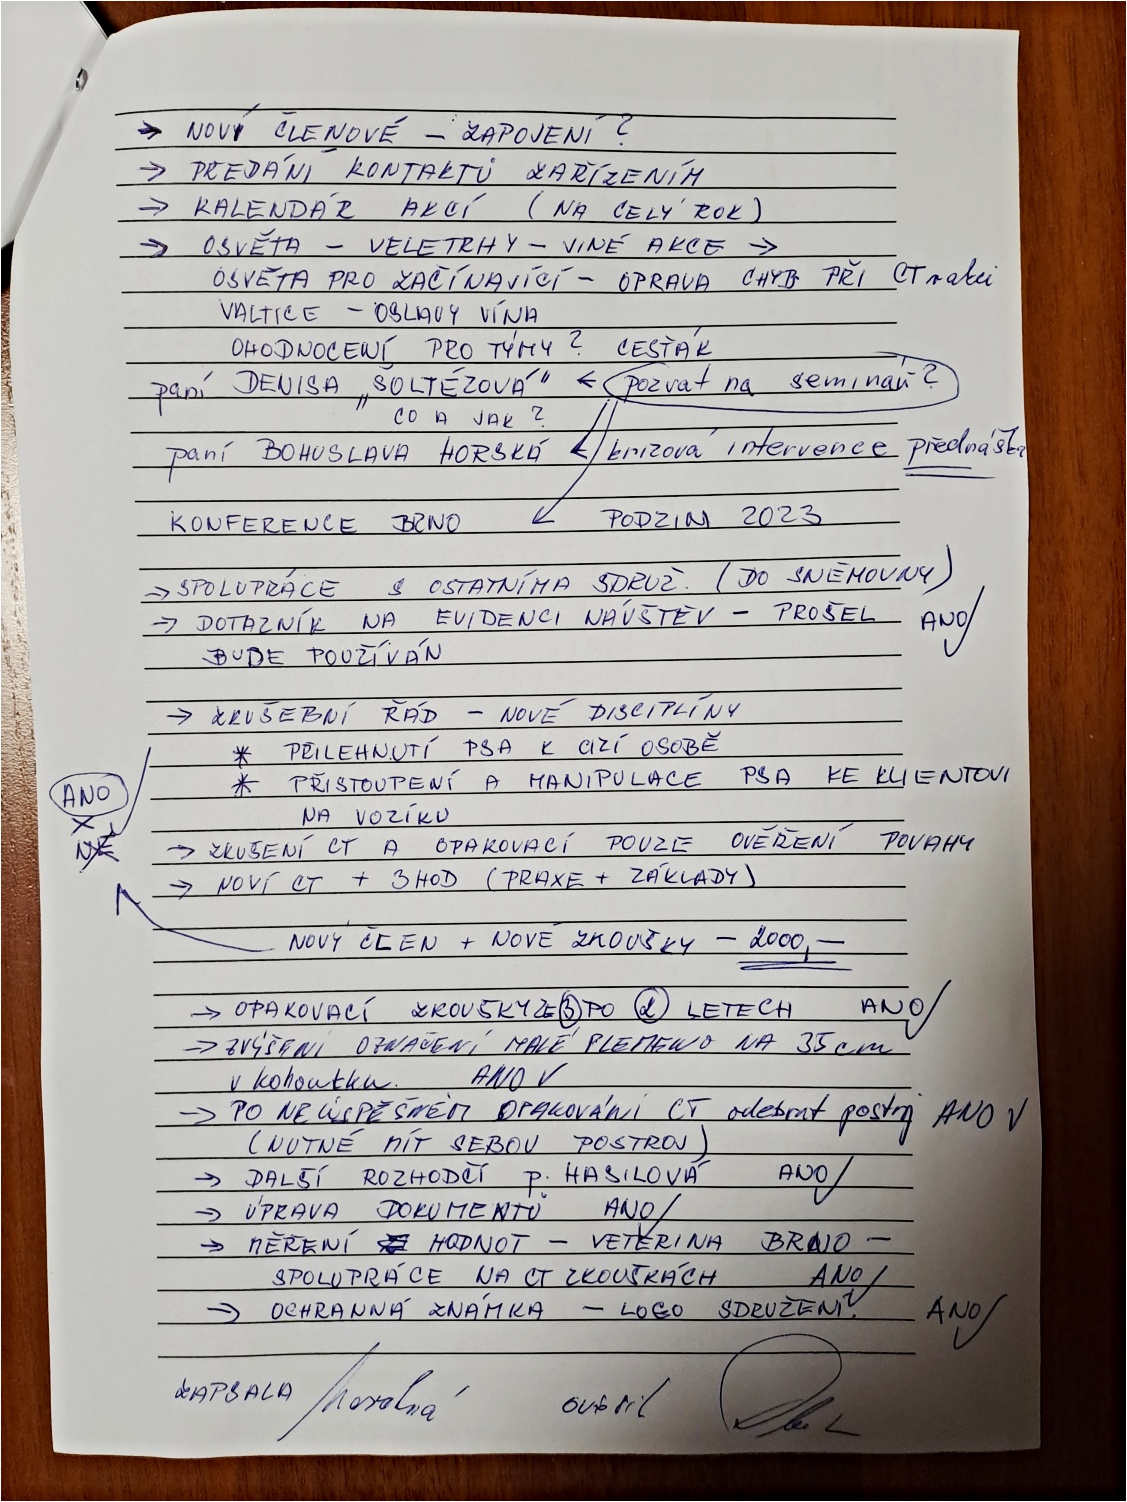 → NOVÍ ČLENOVÉ – ZAPOJENÍ?
→ PŘEDÁNÍ KONTAKTŮ ZAŘÍZENÍM
→ KALENDÁŘ AKCÍ (NA CELÝ ROK)
→ OSVĚTA – VELETRHY – JINÉ AKCE →
OSVĚTA PRO ZAČÍNAJÍCÍ – OPRAVA CHYB PŘI CT na akci
VALTICE – OSLAVY VÍNA
OHODNOCENÍ PRO TÝMY? CESŤÁK
paní DENISA „ŠOLTÉZOVÁ" ← pozvat na seminář?
CO A JAK?
paní BOHUSLAVA HORSKÁ ← krizová intervence přednáška
KONFERENCE BRNO ↙ PODZIM 2023
→ SPOLUPRÁCE S OSTATNÍMA SDRUŽ. (DO SNĚMOVNY)
→ DOTAZNÍK NA EVIDENCI NÁVŠTĚV – PROŠEL ANO ✓
BUDE POUŽÍVÁN
→ ZKUŠEBNÍ ŘÁD – NOVÉ DISCIPLÍNY
* PŘILEHNUTÍ PSA K CIZÍ OSOBĚ
* PŘISTOUPENÍ A MANIPULACE PSA KE KLIENTOVI
ANO
NA VOZÍKU
X
NE
→ ZKUŠENÍ CT A OPAKOVACÍ POUZE OVĚŘENÍ POVAHY
→ NOVÍ CT + 3HOD (PRAXE + ZÁKLADY)
NOVÝ ČLEN + NOVÉ ZKOUŠKY – 2000,–
→ OPAKOVACÍ ZKOUŠKY ZE 3 PO 2 LETECH ANO ✓
→ ZVÝŠENÍ OZNAČENÍ MALÉ PLEMENO NA 35 cm
v kohoutku. ANO ✓
→ PO NEÚSPĚŠNÉM OPAKOVÁNÍ CT odebrat postroj ANO ✓
(NUTNÉ MÍT SEBOU POSTROJ)
→ DALŠÍ ROZHODČÍ p. HASILOVÁ ANO ✓
→ ÚPRAVA DOKUMENTŮ ANO ✓
→ MĚŘENÍ HODNOT – VETERINA BRNO –
SPOLUPRÁCE NA CT ZKOUŠKÁCH ANO ✓
→ OCHRANNÁ ZNÁMKA – LOGO SDRUŽENÍ. ANO ✓
ZAPSALA ověřil